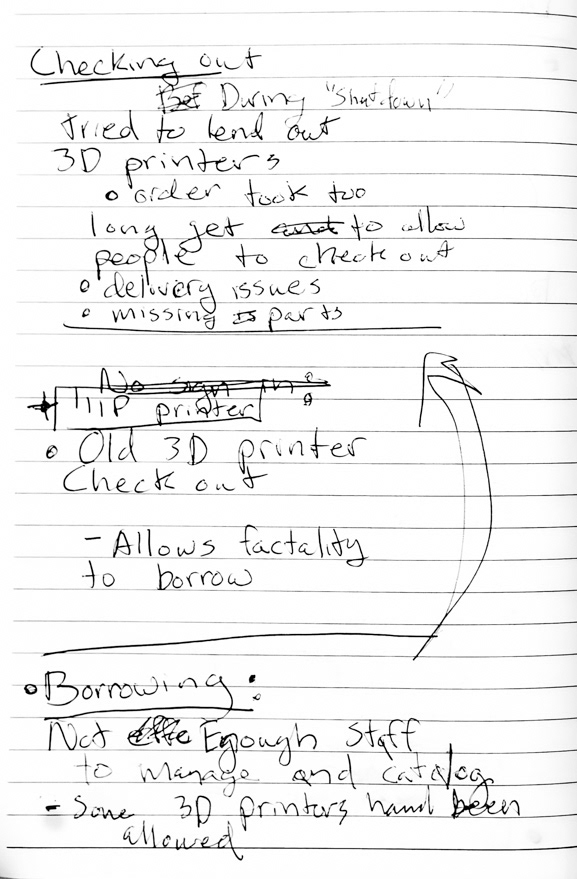 Checking out
During "Shutdown"
tried to lend out
3D printers
• order took too
long get to allow
people to check out
• delivery issues
• missing parts
No sign in:
printer
• Old 3D printer
Check out
- Allows factality
to borrow
• Borrowing:
Not Enough Staff
to manage and catalog
- Some 3D printers hand been
allowed